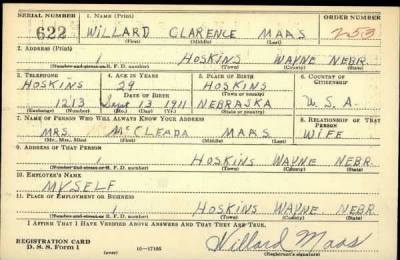 SERIAL NUMBER 1. NAME (Print) ORDER NUMBER
622 WILLARD CLARENCE MAAS 253
(First) (Middle) (Last)
2. ADDRESS (Print)
1 HOSKINS WAYNE NEBR.
(Number and street or R. F. D. number) (Town) (County) (State)
3. TELEPHONE 4. AGE IN YEARS 5. PLACE OF BIRTH 6. COUNTRY OF CITIZENSHIP
HOSKINS 29 HOSKINS
DATE OF BIRTH (Town or county)
1213 Sept 13 1911 NEBRASKA U.S.A.
(Exchange) (Number) (Mo.) (Day) (Yr.) (State or country)
7. NAME OF PERSON WHO WILL ALWAYS KNOW YOUR ADDRESS 8. RELATIONSHIP OF THAT PERSON
MRS. McCLEADA MAAS WIFE
(Mr., Mrs., Miss) (First) (Middle) (Last)
9. ADDRESS OF THAT PERSON
1 HOSKINS WAYNE NEBR.
(Number and street or R. F. D. number) (Town) (County) (State)
10. EMPLOYER'S NAME
MYSELF
11. PLACE OF EMPLOYMENT OR BUSINESS
1 HOSKINS WAYNE NEBR.
(Number and street or R. F. D. number) (Town) (County) (State)
I AFFIRM THAT I HAVE VERIFIED ABOVE ANSWERS AND THAT THEY ARE TRUE.
REGISTRATION CARD
D. S. S. Form 1 (over) 16—17105 Willard Maas
(Registrant's signature)